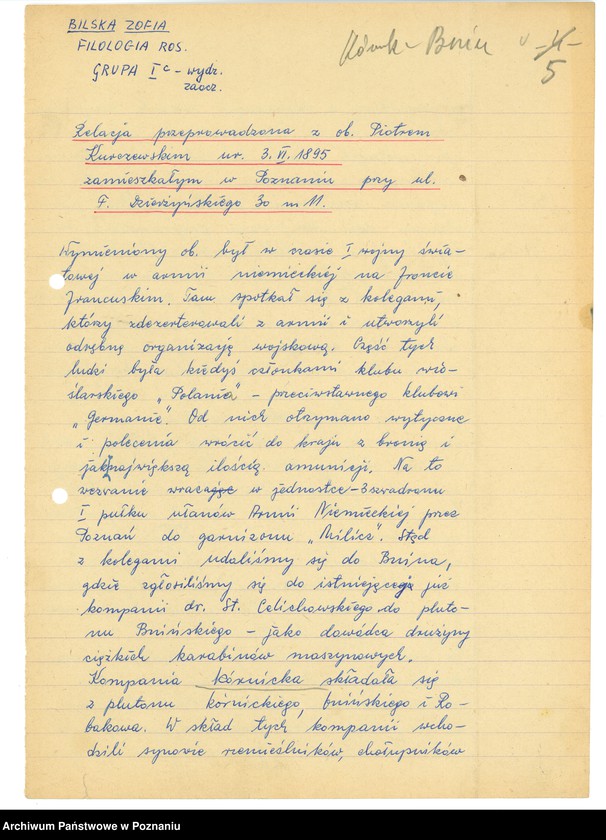 BILSKA ZOFIA
FILOLOGIA ROS.
GRUPA I c - wydz.
zaocz.
Kórnik - Bnin
5
Relacja przeprowadzona z ob. Piotrem
Kurczewskim ur. 3. VI. 1895
zamieszkałym w Poznaniu przy ul.
F. Dzierżyńskiego 30 m 11.
Wymieniony ob. był w czasie I wojny świa-
towej w armii niemieckiej na froncie
francuskim. Tam spotkał się z kolegami,
którzy zdezerterowali z armii i utworzyli
odrębną organizację wojskową. Część tych
ludzi była kiedyś członkami klubu wio-
ślarskiego „Polania" - przeciwstawnego klubowi
„Germanie". Od nich otrzymano wytyczne
i polecenia wrócić do kraju z bronią i
jak największą ilością amunicji. Na to
wezwanie wracając w jednostce - 3 szwadronu
I pułku ułanów Armii Niemieckiej przez
Poznań do garnizonu „Milicz". Stąd
z kolegami udaliśmy się do Bnina,
gdzie zgłosiliśmy się do istniejącej już
kompanii dr. St. Celichowskiego do pluto-
nu Bnińskiego - jako dowódca drużyny
ciężkich karabinów maszynowych.
Kompania kórnicka składała się
z plutonu kórnickiego, bnińskiego i Ro-
bakowa. W skład tych kompanii wcho-
dzili synowie rzemieślników, chałupników
Archiwum Państwowe w Poznaniu